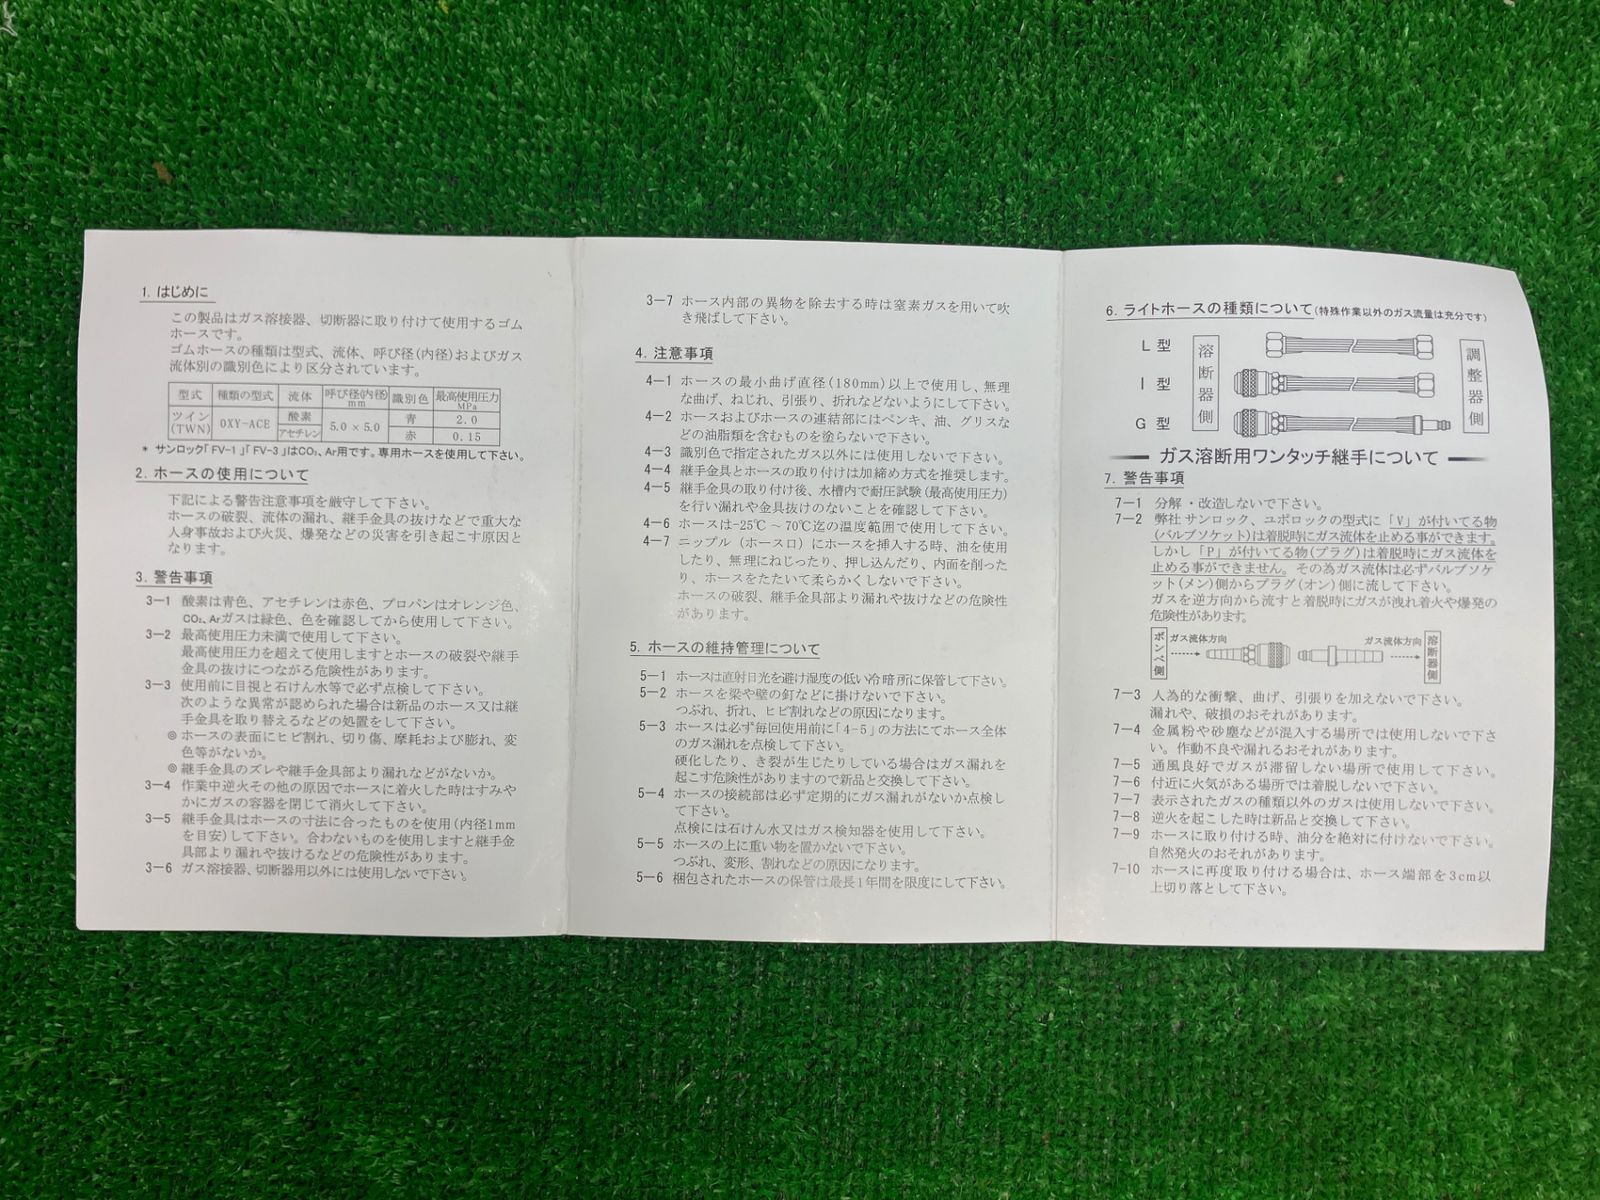 1. はじめに
この製品はガス溶接器、切断器に取り付けて使用するゴム
ホースです。
ゴムホースの種類は型式、流体、呼び径(内径)およびガス
流体別の識別色により区分されています。
型式 種類の型式 流体 呼び径(内径)mm 識別色 最高使用圧力MPa
ツイン(TWN) OXY-ACE 酸素 5.0 × 5.0 青 2.0
アセチレン 赤 0.15
* サンロック「FV-1」「FV-3」はCO₂、Ar用です。専用ホースを使用して下さい。
2. ホースの使用について
下記による警告注意事項を厳守して下さい。
ホースの破裂、流体の漏れ、継手金具の抜けなどで重大な
人身事故および火災、爆発などの災害を引き起こす原因と
なります。
3. 警告事項
3-1 酸素は青色、アセチレンは赤色、プロパンはオレンジ色、
CO₂、Arガスは緑色、色を確認してから使用して下さい。
3-2 最高使用圧力未満で使用して下さい。
最高使用圧力を超えて使用しますとホースの破裂や継手
金具の抜けにつながる危険性があります。
3-3 使用前に目視と石けん水等で必ず点検して下さい。
次のような異常が認められた場合は新品のホース又は継
手金具を取り替えるなどの処置をして下さい。
◎ ホースの表面にヒビ割れ、切り傷、摩耗および膨れ、変
色等がないか。
◎ 継手金具のズレや継手金具部より漏れなどがないか。
3-4 作業中逆火その他の原因でホースに着火した時はすみや
かにガスの容器を閉じて消火して下さい。
3-5 継手金具はホースの寸法に合ったものを使用(内径1mm
を目安)して下さい。合わないものを使用しますと継手金
具部より漏れや抜けるなどの危険性があります。
3-6 ガス溶接器、切断器用以外には使用しないで下さい。
3-7 ホース内部の異物を除去する時は窒素ガスを用いて吹
き飛ばして下さい。
4. 注意事項
4-1 ホースの最小曲げ直径(180mm)以上で使用し、無理
な曲げ、ねじれ、引張り、折れなどないようにして下さい。
4-2 ホースおよびホースの連結部にはペンキ、油、グリスな
どの油脂類を含むものを塗らないで下さい。
4-3 識別色で指定されたガス以外には使用しないで下さい。
4-4 継手金具とホースの取り付けは加締め方式を推奨します。
4-5 継手金具の取り付け後、水槽内で耐圧試験(最高使用圧力)
を行い漏れや金具抜けのないことを確認して下さい。
4-6 ホースは-25℃ ～ 70℃迄の温度範囲で使用して下さい。
4-7 ニップル (ホース口) にホースを挿入する時、油を使用
したり、無理にねじったり、押し込んだり、内面を削った
り、ホースをたたいて柔らかくしないで下さい。
ホースの破裂、継手金具部より漏れや抜けなどの危険性
があります。
5. ホースの維持管理について
5-1 ホースは直射日光を避け湿度の低い冷暗所に保管して下さい。
5-2 ホースを梁や壁の釘などに掛けないで下さい。
つぶれ、折れ、ヒビ割れなどの原因になります。
5-3 ホースは必ず毎回使用前に「4-5」の方法にてホース全体
のガス漏れを点検して下さい。
硬化したり、き裂が生じたりしている場合はガス漏れを
起こす危険性がありますので新品と交換して下さい。
5-4 ホースの接続部は必ず定期的にガス漏れがないか点検し
て下さい。
点検には石けん水又はガス検知器を使用して下さい。
5-5 ホースの上に重い物を置かないで下さい。
つぶれ、変形、割れなどの原因になります。
5-6 梱包されたホースの保管は最長1年間を限度にして下さい。
6. ライトホースの種類について(特殊作業以外のガス流量は充分です)
L 型
I 型
G 型
溶断器側
調整器側
ガス溶断用ワンタッチ継手について
7. 警告事項
7-1 分解・改造しないで下さい。
7-2 弊社 サンロック、ユポロックの型式に「V」が付いてる物
(バルブソケット)は着脱時にガス流体を止める事ができます。
しかし「P」が付いてる物(プラグ)は着脱時にガス流体を
止める事ができません。その為ガス流体は必ずバルブソケ
ット(メン)側からプラグ(オン)側に流して下さい。
ガスを逆方向から流すと着脱時にガスが洩れ着火や爆発の
危険性があります。
ボンベ側 ガス流体方向 ガス流体方向 溶断器側
7-3 人為的な衝撃、曲げ、引張りを加えないで下さい。
漏れや、破損のおそれがあります。
7-4 金属粉や砂塵などが混入する場所では使用しないで下さ
い。作動不良や漏れるおそれがあります。
7-5 通風良好でガスが滞留しない場所で使用して下さい。
7-6 付近に火気がある場所では着脱しないで下さい。
7-7 表示されたガスの種類以外のガスは使用しないで下さい。
7-8 逆火を起こした時は新品と交換して下さい。
7-9 ホースに取り付ける時、油分を絶対に付けないで下さい。
自然発火のおそれがあります。
7-10 ホースに再度取り付ける場合は、ホース端部を3cm以
上切り落として下さい。